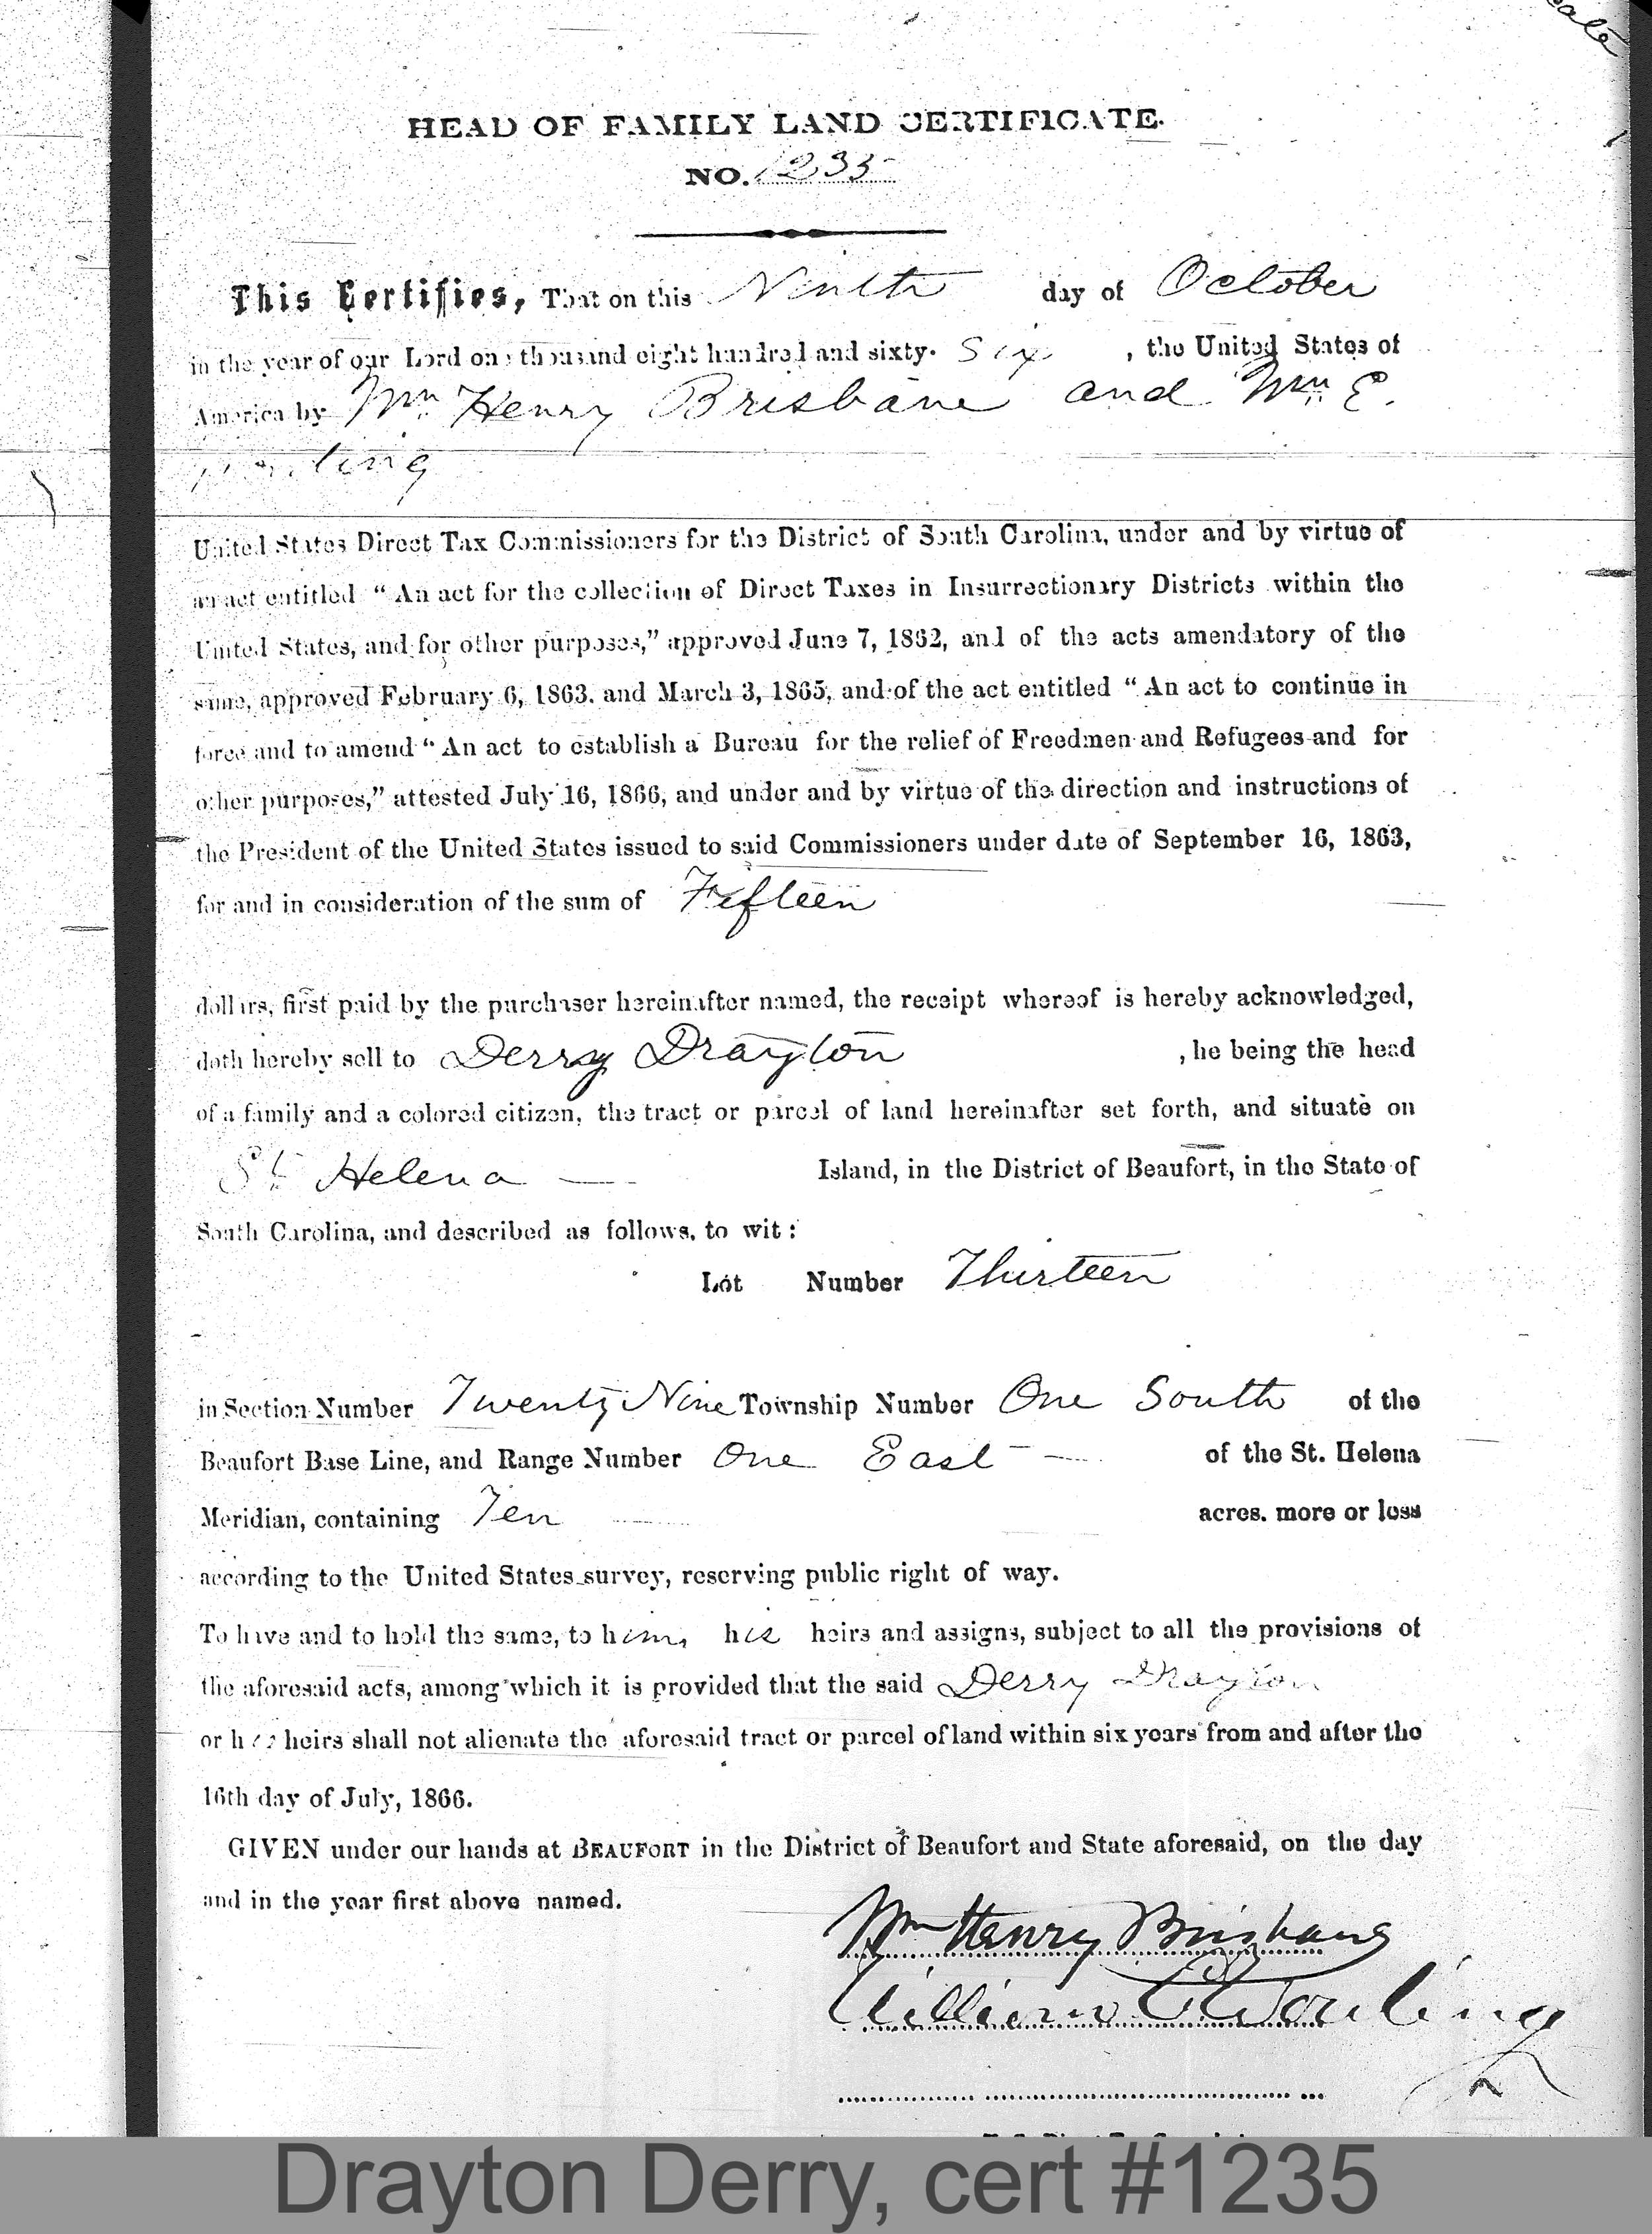 HEAD OF FAMILY LAND CERTIFICATE.
NO. 1235
This Certifies, That on this Ninth day of October
in the year of our Lord one thousand eight hundred and sixty-six, the United States of
America by Wm Henry Brisbane and Wm E.
Wording
United States Direct Tax Commissioners for the District of South Carolina, under and by virtue of
an act entitled "An act for the collection of Direct Taxes in Insurrectionary Districts within the
United States, and for other purposes," approved June 7, 1862, and of the acts amendatory of the
same, approved February 6, 1863, and March 3, 1865, and of the act entitled "An act to continue in
force and to amend "An act to establish a Bureau for the relief of Freedmen and Refugees and for
other purposes," attested July 16, 1866, and under and by virtue of the direction and instructions of
the President of the United States issued to said Commissioners under date of September 16, 1863,
for and in consideration of the sum of Fifteen
dollars, first paid by the purchaser hereinafter named, the receipt whereof is hereby acknowledged,
doth hereby sell to Derry Drayton , he being the head
of a family and a colored citizen, the tract or parcel of land hereinafter set forth, and situate on
St Helena Island, in the District of Beaufort, in the State of
South Carolina, and described as follows, to wit:
Lot Number Thirteen
in Section Number Twenty Nine Township Number One South of the
Beaufort Base Line, and Range Number One East of the St. Helena
Meridian, containing Ten acres. more or less
according to the United States survey, reserving public right of way.
To have and to hold the same, to him, his heirs and assigns, subject to all the provisions of
the aforesaid acts, among which it is provided that the said Derry Drayton
or his heirs shall not alienate the aforesaid tract or parcel of land within six years from and after the
16th day of July, 1866.
GIVEN under our hands at BEAUFORT in the District of Beaufort and State aforesaid, on the day
and in the year first above named.
Wm Henry Brisbane
William E Wording
Drayton Derry, cert #1235